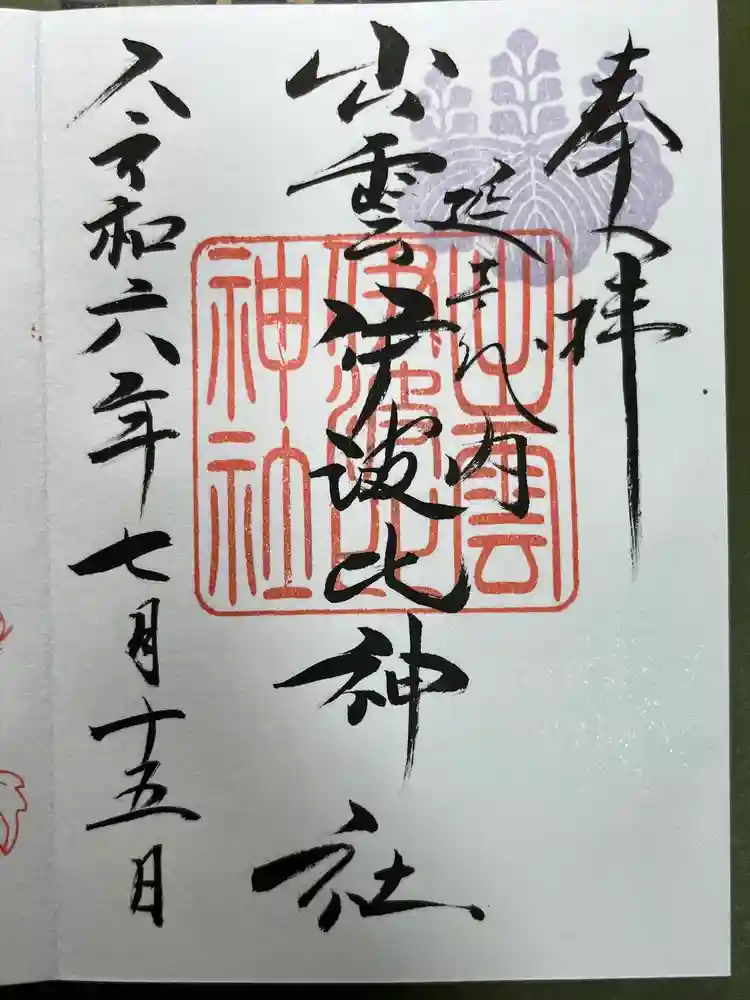 奉拝
延喜式内
出雲伊波比神社
令和六年七月十五日
出雲
伊波比
神社